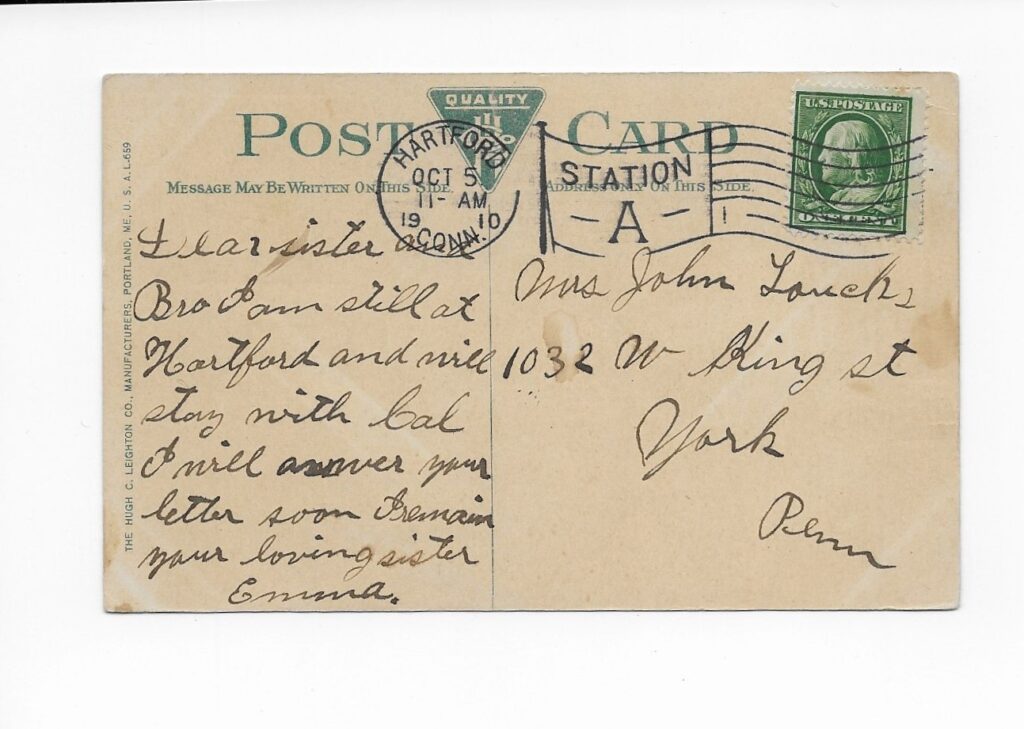 POST CARD
QUALITY
MESSAGE MAY BE WRITTEN ON THIS SIDE.
ADDRESS ONLY ON THIS SIDE.
HARTFORD
OCT 5
11- AM
1910
CONN.
STATION
A
1
U.S. POSTAGE
ONE CENT
THE HUGH C. LEIGHTON CO., MANUFACTURERS, PORTLAND, ME., U. S. A. L-659
Dear sister and
Bro I am still at
Hartford and will
stay with Cal
I will answer your
letter soon I remain
your loving sister
Emma.
Mrs John Loucks
1032 W King st
York
Penn